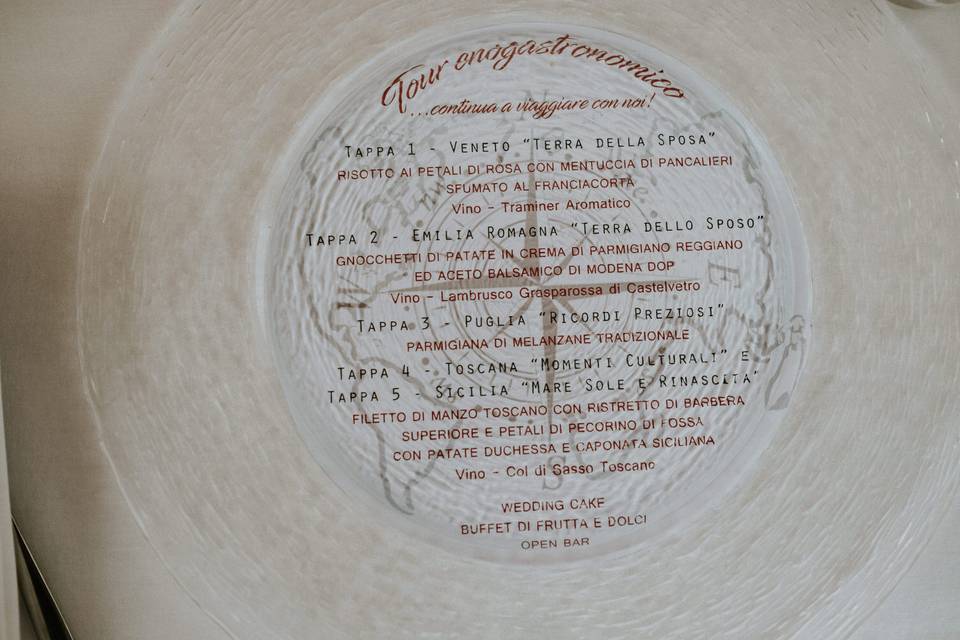 Tour enogastronomico
...continua a viaggiare con noi!
TAPPA 1 - VENETO "TERRA DELLA SPOSA"
RISOTTO AI PETALI DI ROSA CON MENTUCCIA DI PANCALIERI
SFUMATO AL FRANCIACORTA
Vino - Traminer Aromatico
TAPPA 2 - EMILIA ROMAGNA "TERRA DELLO SPOSO"
GNOCCHETTI DI PATATE IN CREMA DI PARMIGIANO REGGIANO
ED ACETO BALSAMICO DI MODENA DOP
Vino - Lambrusco Grasparossa di Castelvetro
TAPPA 3 - PUGLIA "RICORDI PREZIOSI"
PARMIGIANA DI MELANZANE TRADIZIONALE
TAPPA 4 - TOSCANA "MOMENTI CULTURALI" E
TAPPA 5 - SICILIA "MARE SOLE E RINASCITA"
FILETTO DI MANZO TOSCANO CON RISTRETTO DI BARBERA
SUPERIORE E PETALI DI PECORINO DI FOSSA
CON PATATE DUCHESSA E CAPONATA SICILIANA
Vino - Col di Sasso Toscano
WEDDING CAKE
BUFFET DI FRUTTA E DOLCI
OPEN BAR
N
W
E
S